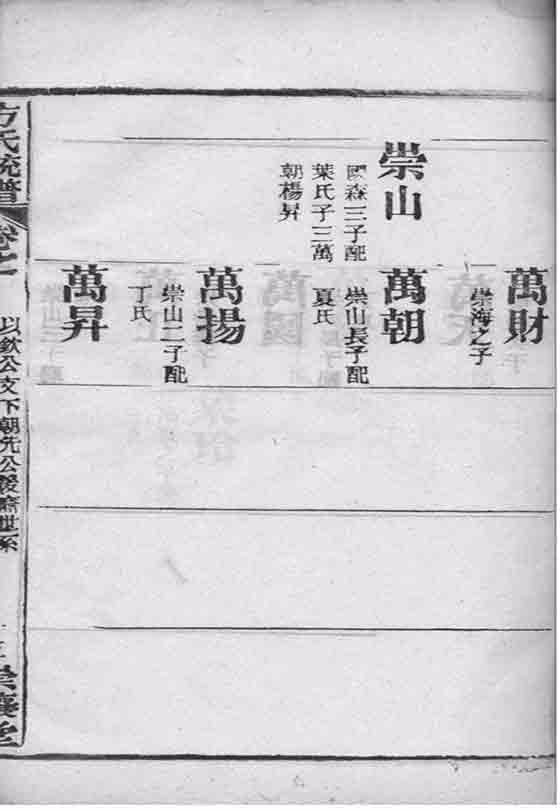 崇山
國森三子配
葉氏子三萬
朝楊昇
萬財
崇海之子
萬朝
崇山長子配
夏氏
萬揚
崇山二子配
丁氏
萬昇
方氏統譜
卷七
以欽公支下朝先公後裔世系